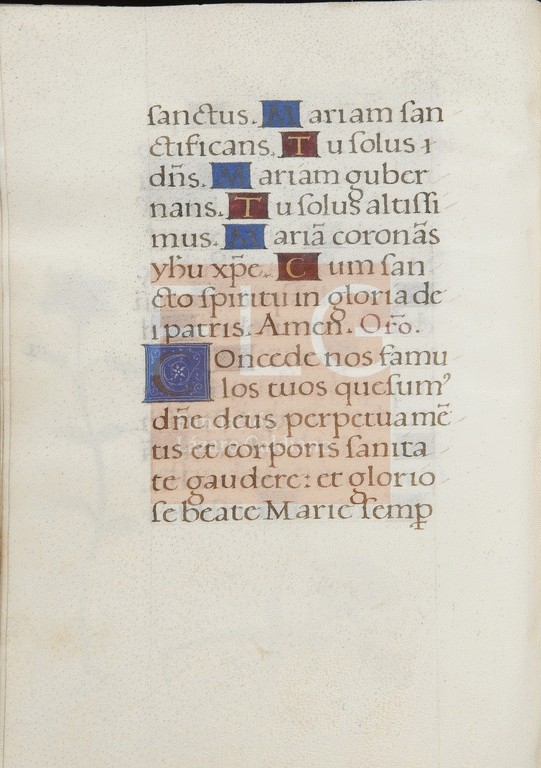 sanctus. Mariam san
ctificans. Tu solus i
dn̄s. Mariam guber
nans. Tu solus altissi
mus. Mariā coronās
yħu xp̄e. Cum san
cto spiritu in gloria de
i patris. Amen. Or̄o.
Concede nos famu
los tuos quesumꝰ
dn̄e deus perpetua mē
tis et corporis sanita
te gaudere: et glorio
se beate Marie semꝑ
FLG